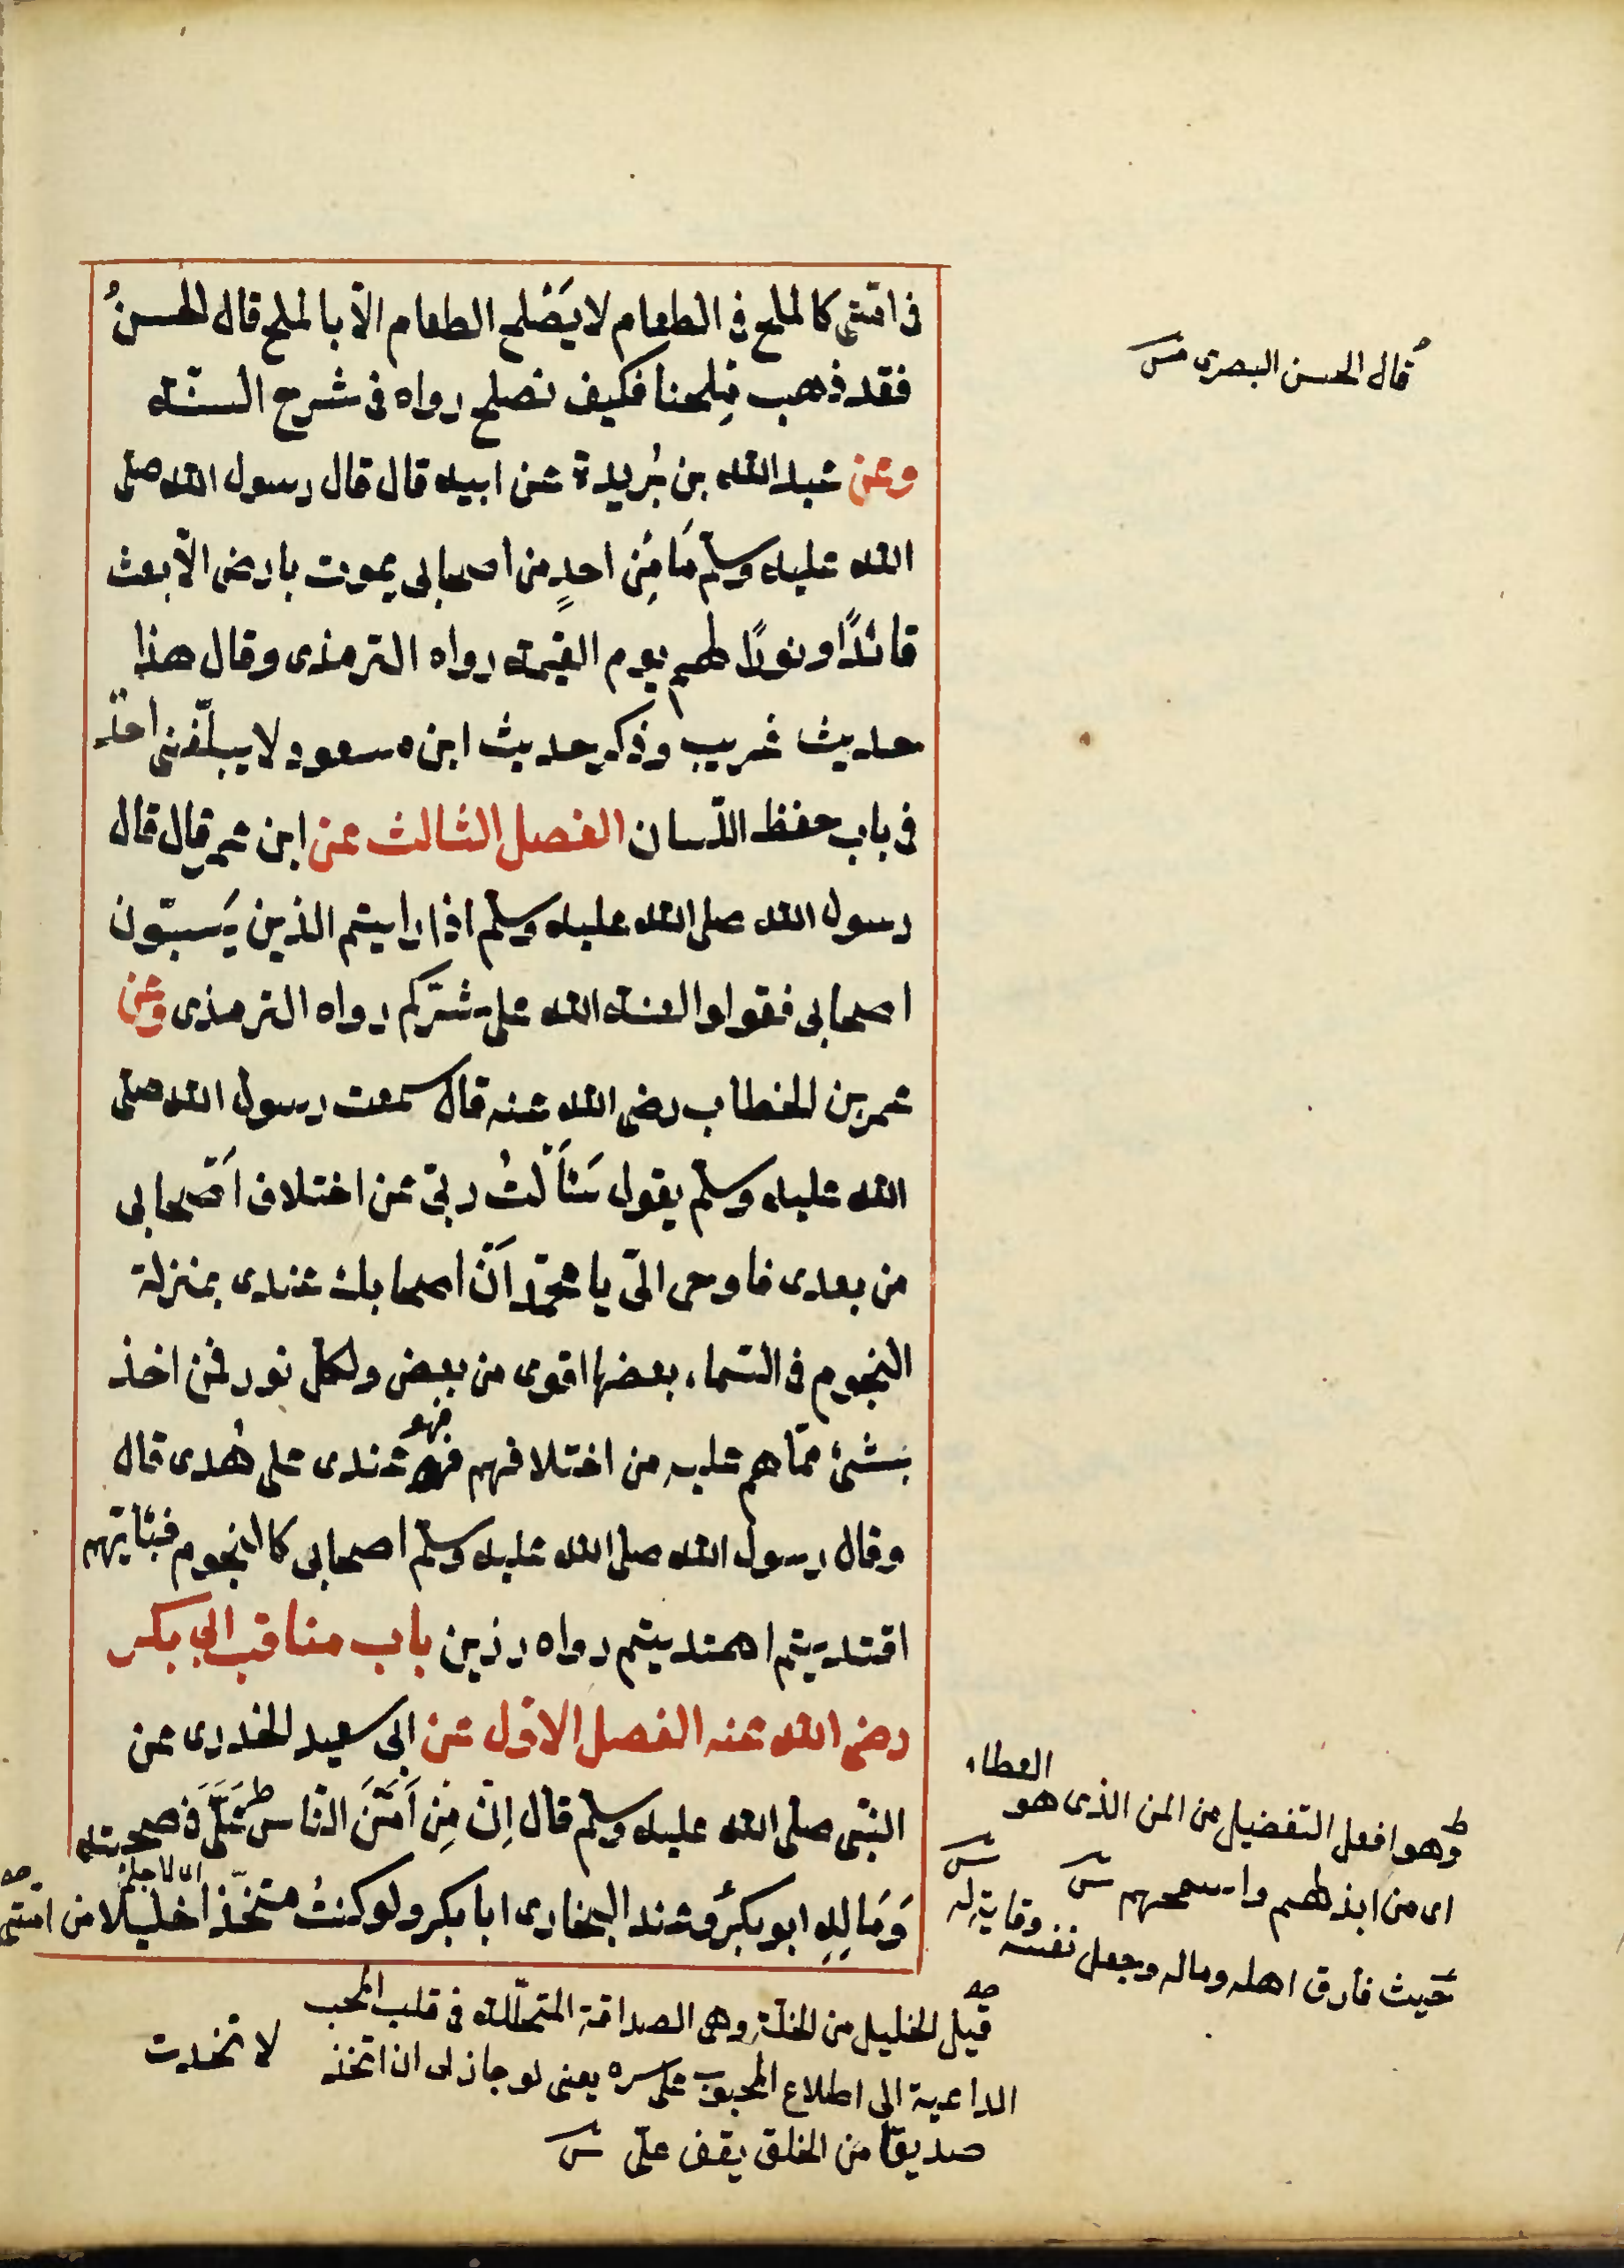 فى امّتى كالملح فى الطعام لا يَصْلح الطعام الّا بالملح قال الحسنُ
فقد ذهب مِلحنا فكيف نصلح رواه فى شرح السنّة
وعن عبد الله بن بُريدة عن ابيه قال قال رسول الله صلى
الله عليه وسلّم مَا مِن احدٍ من اصحابى يموت بارض الّا بعث
قائدًا ونورًا لهم يوم القيمة رواه الترمذى وقال هذا
حديث غريب وذكر حديث ابن مسعود لا يبلّغنى احدٌ
فى باب حفظ اللّسان الفصل الثالث عن ابن عمر قال قال
رسول الله صلى الله عليه وسلّم اذا رايتم الذين يَسبّون
اصحابى فقولوا لعنة الله على شرّكم رواه الترمذى وعن
عمر بن الخطاب رضى الله عنه قال سمعت رسول الله صلى
الله عليه وسلّم يقول سَئَالْتُ ربّى عن اختلاف اَصْحابى
من بعدى فاوحى الىّ يا محمّد اَنّ اصحابك عندى بمنزلة
النجوم فى السّماء بعضها اقوى من بعض ولكلّ نور فمن اخذ
بشئ ممّا هم عليه من اختلافهم فهو عندى على هُدى قال
فهو
وقال رسول الله صلى الله عليه وسلّم اصحابى كالنجوم فبئايّهم
اقتديتم اهتديتم رواه رزين باب مناقب ابى بكر
رضى الله عنه الفصل الاوّل عن ابى سعيد الخدرى عن
النبّى صلّى الله عليه وسلّم قال اِنّ مِن اَمَنَّ النّاس عَلَىَّ فى صحبته
وَمَالِهِ ابو بكرٌ وعند البخارى ابا بكر ولو كنتُ متخّذا خليلا من امّتى
اى لاجلى
لا تخدت
قال الحسن البصرى
العطاء
وهو افعل التفضيل من المن الذى هو
اى من ابذلهم واسمحهم
حيث فارق اهله وماله وجعل نفسه وقاية له
قيل الخليل من الخلّة وهى الصداقة المتخلّلة فى قلب المحب
الداعية الى اطلاع المحبوب على سره يعنى لو جاز لى ان اتخذ
صديقا من الخلق يقف على